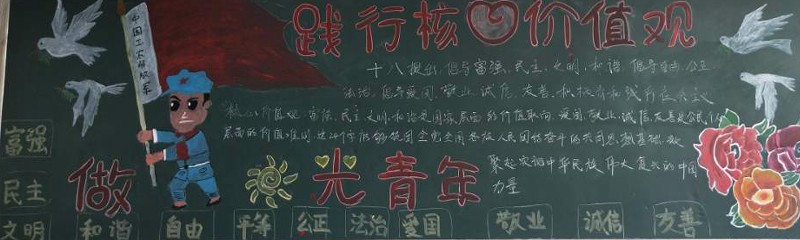 践行核心价值观
中国工农红军
十八提出,倡导富强、民主、文明、和谐,倡导自由、公正
法治,倡导爱国、敬业、诚信、友善,积极培育和践行社会主义
核心价值观。富强、民主、文明、和谐是国家层面的价值取向,爱国、敬业、诚信、友善是公民个人
层面的价值准则,这24个字
聚起实现中华民族伟大复兴的中国
力量
做 阳光青年
富强
民主
文明 和谐 自由 平等 公正 法治 爱国 敬业 诚信 友善